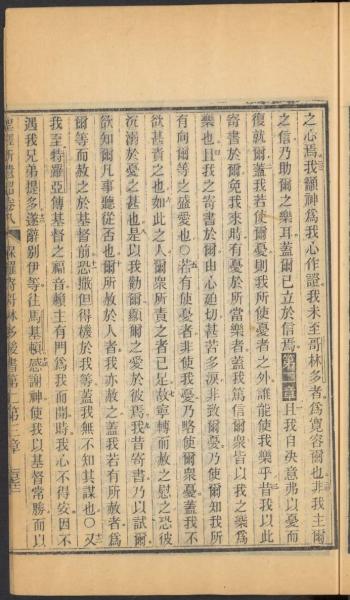 之心焉我籲神爲我心作證我未至哥林多者爲寬容爾也非我主爾
之信乃助爾之樂耳蓋爾已立於信焉第二章且我自決意弗以憂而
復就爾蓋我若使爾憂則我所使憂者之外誰能使我樂乎昔我以此
寄書於爾免我來時有憂於所當樂者蓋我篤信爾衆皆以我之樂爲
樂也且我之寄書於爾由心廹切甚苦多淚非致爾憂乃使爾知我所
有向爾等之盛愛也〇若有使憂者非使我憂乃略使爾衆憂蓋我不
欲甚責之也如此之人爾衆所責之者已足故寧轉而赦之慰之恐彼
沉溺於憂之甚也是以我勸爾顯爾之愛於彼焉我昔寄書乃以試爾
欲知爾凡事聽從否也爾所赦於人者我亦赦之蓋我若有所赦者爲
爾等而赦之於基督前恐撒但得機於我等蓋我無不知其謀也〇又
我至特羅亞傳基督之福音賴主有門爲我而開時我心不得安因不
遇我兄弟提多遂辭別伊等往馬基頓感謝神使我以基督常勝而以
聖經新遺詔卷八 保羅寄哥林多後書第二第三章